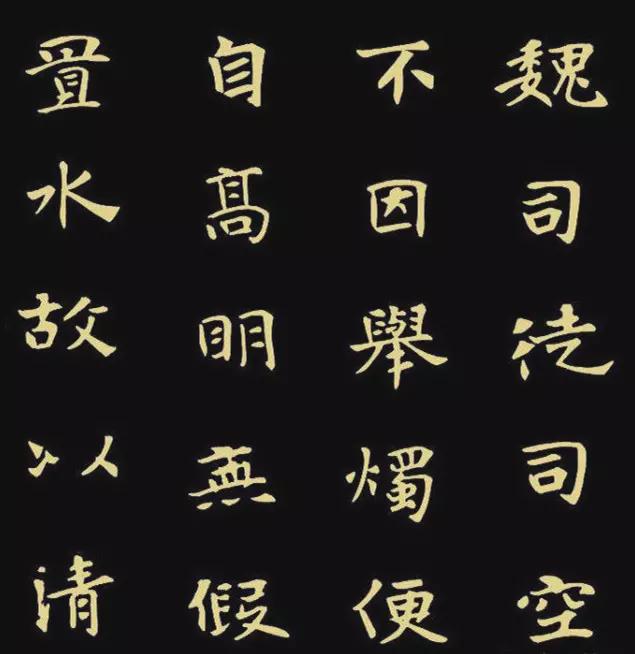 魏司徒司空
不因舉燭便
自高明無假
置水故以清